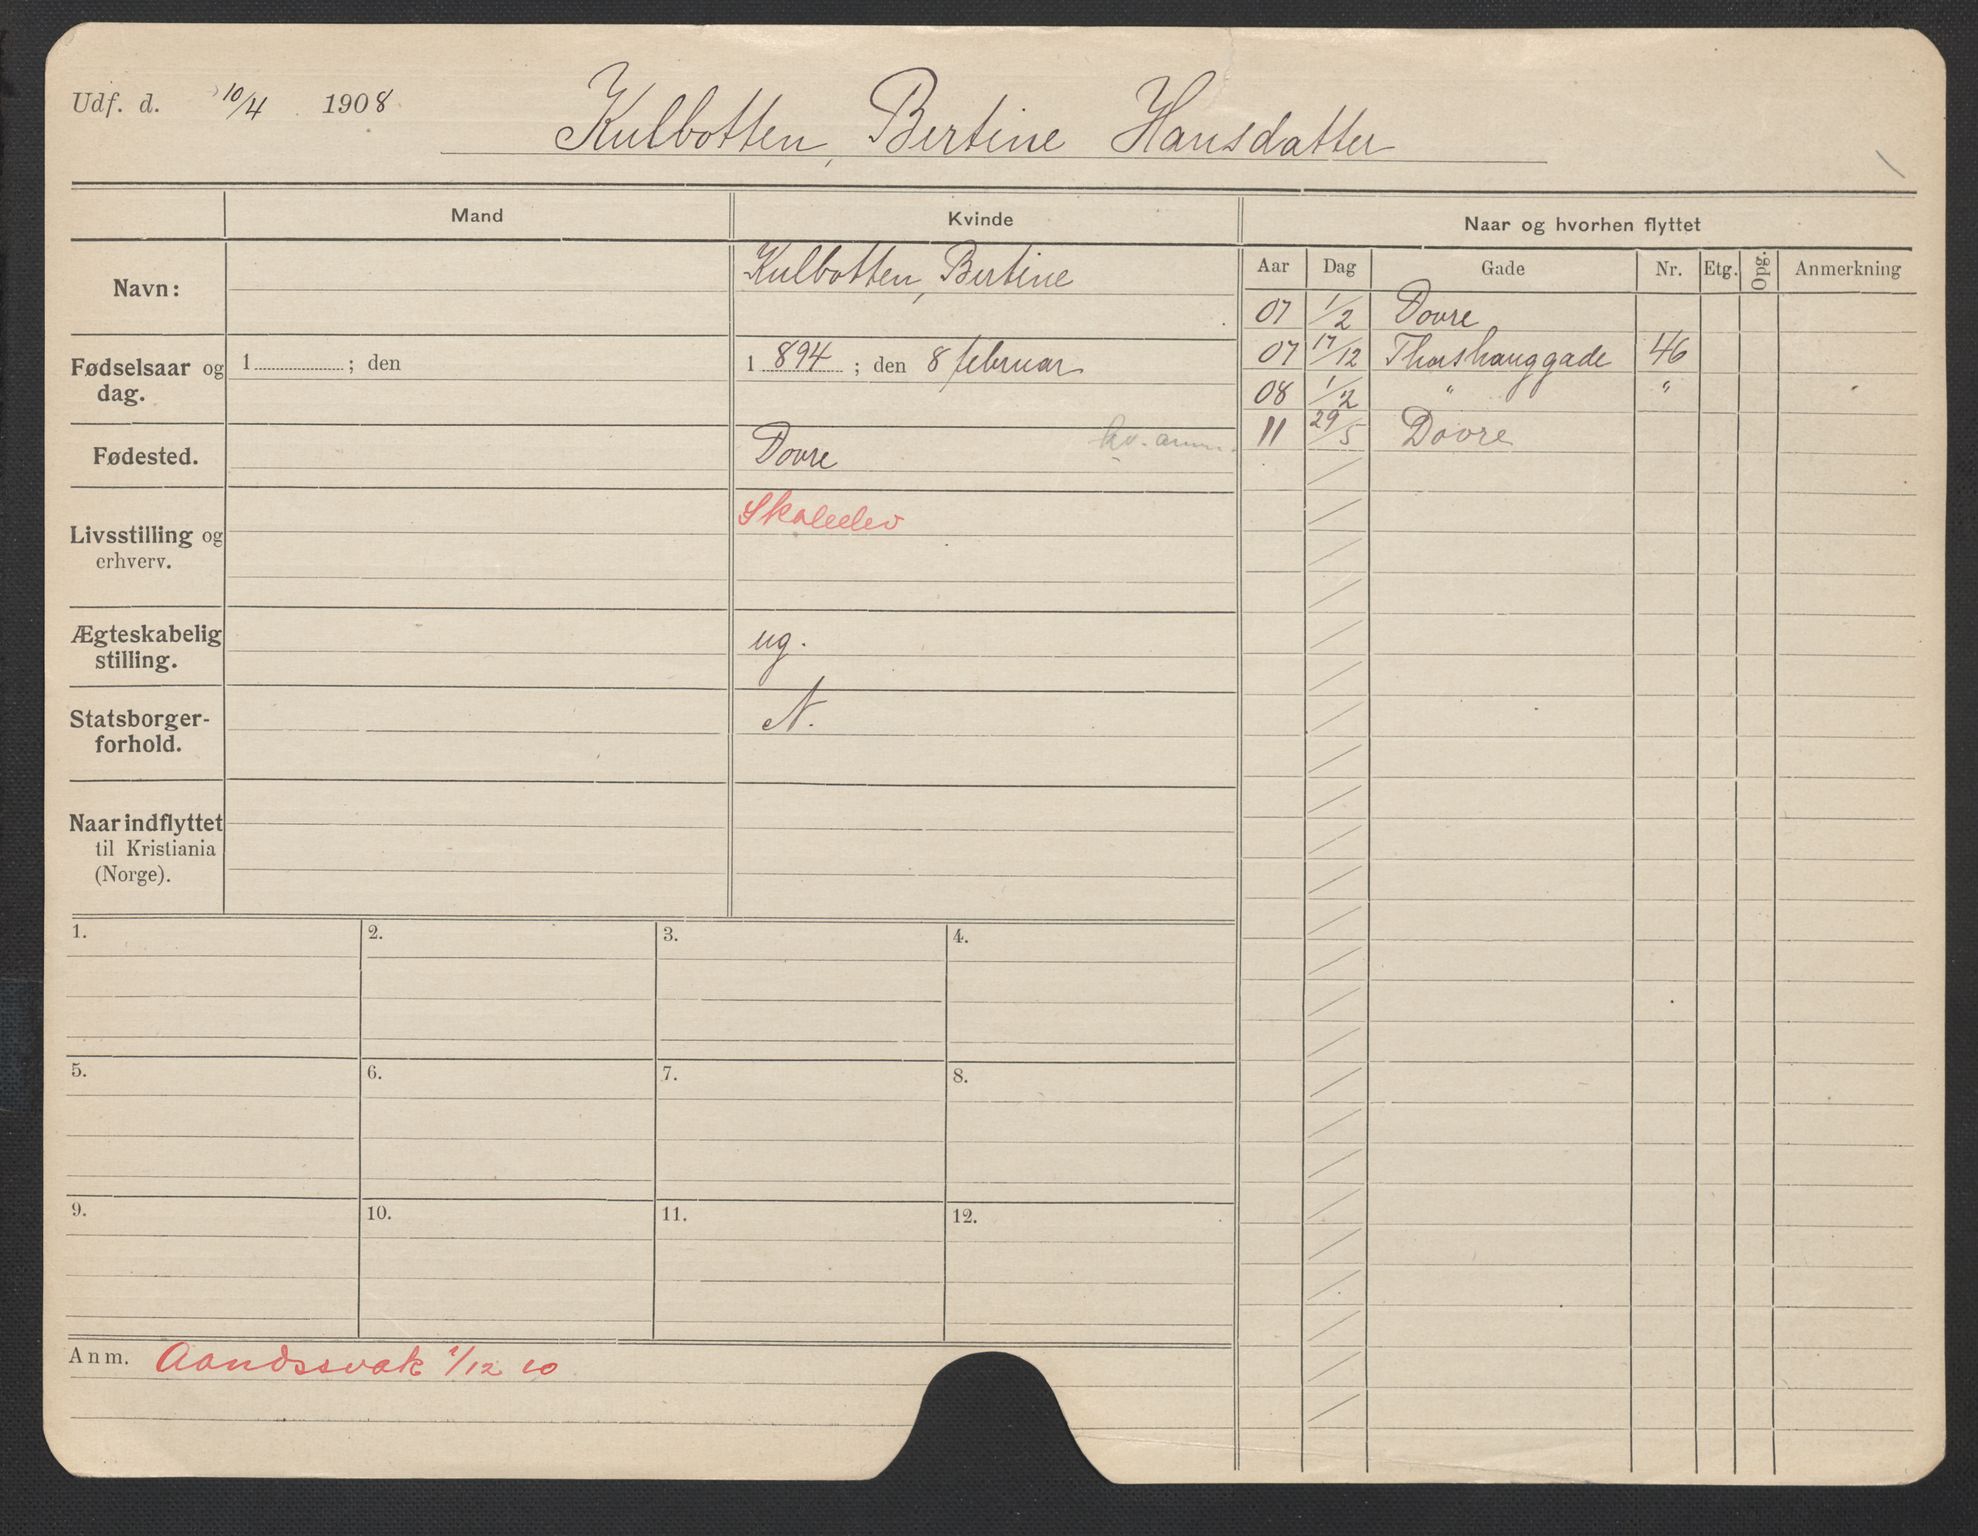 Udf. d. 10/4 1908
Kulbotten, Bertine Hansdatter
Mand
Kvinde
Naar og hvorhen flyttet
Aar Dag Gade Nr. Etg. Opg. Anmerkning
Navn:
Kulbotten, Bertine
Fødselsaar og
dag.
1 ; den
1 894 ; den 8 februar
Fødested.
Dovre
Livsstilling og
erhverv.
Skoleelev
Ægteskabelig
stilling.
ug.
Statsborger-
forhold.
N.
Naar indflyttet
til Kristiania
(Norge).
07 1/2 Dovre
07 17/12 Thorshauggade 46
08 1/2 " "
11 29/5 Dovre
1. 2. 3. 4.
5. 6. 7. 8.
9. 10. 11. 12.
Anm. Aandssvak 1/12 10